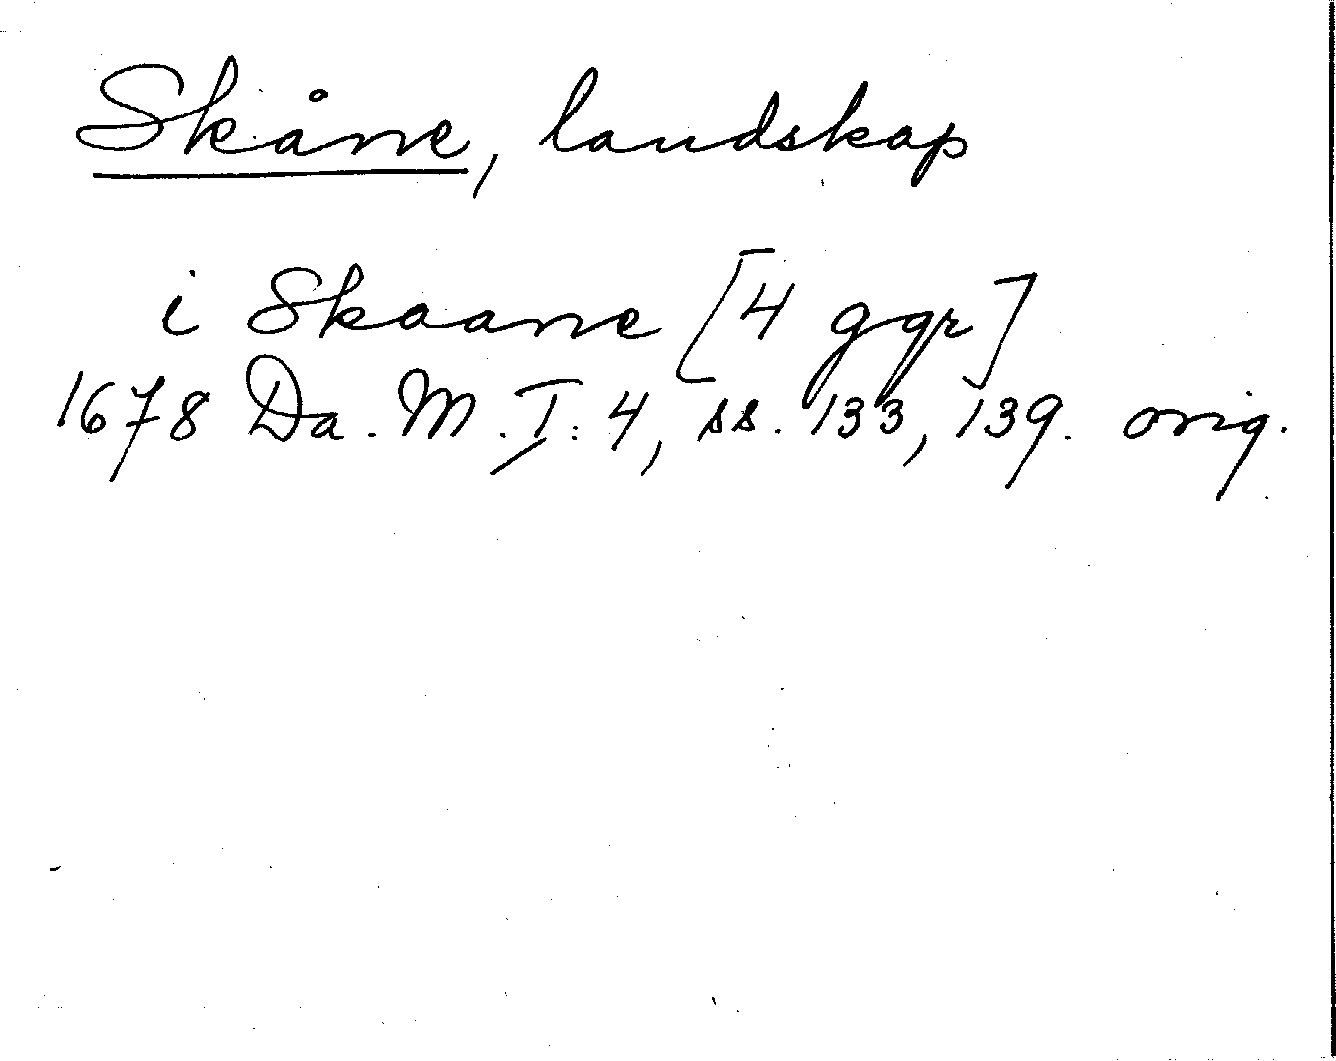 Skåne, landskap
i Skaane [4 ggr]
1678 Da. M. I: 4, ss. 133, 139. orig.